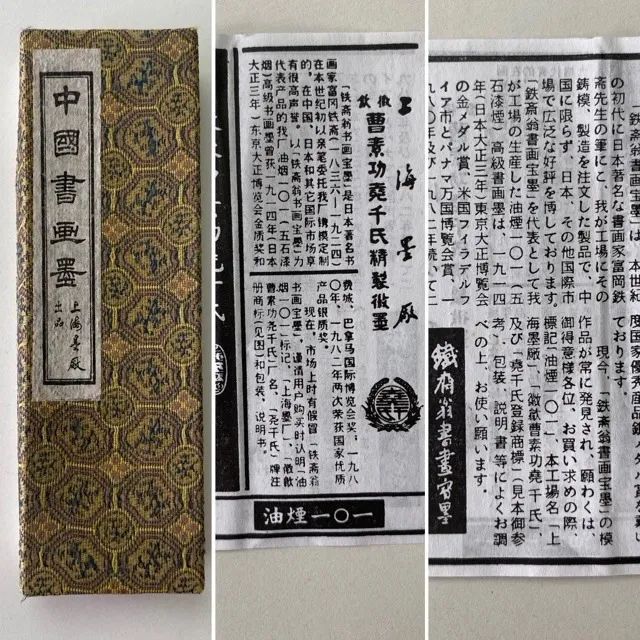 中國書画墨
上海墨厰
出品
上海墨厰
徽歙曹素功堯千氏精製徽墨
「铁斋翁书画宝墨」是日本著名书
画家富冈铁斋(一八三六—一九二四)
在本世纪初以亲笔委托我厂镌模定制
的，在中国、日本和其它国际市场享
有很高声誉。以「铁斋翁书画宝墨」为
代表产品的我厂油烟一〇一(五石漆
烟)高级书画墨曾获一九一四年(日本
大正三年)东京大正博览会金质奖和
费城、巴拿马国际博览会奖，一九八
〇年、一九八二年两次荣获国家优质
产品银质奖。
现在，市场上时有假冒「铁斋翁
书画宝墨」，谨请用户购买时认明「油
烟一〇一」标记、「上海墨厂」、「徽歙
曹素功尧千氏」厂名、「尧千氏」牌注
册商标(见图)和包装、说明书。
油煙一〇一
「鉄斎翁書画宝墨」は、本世紀
の初代に日本著名な書画家富岡鉄
斎先生の筆にて、我が工場にその
鋳模、製造を注文した製品で、中
国に限らず、日本、その他国際市
場で広泛な好評を博しております。
「鉄斎翁書画宝墨」を代表として我
が工場の生産した油煙一〇一(五
石漆煙)高級書画墨は、一九一四
年(日本大正三年)東京大正博覧会
の金メダル賞、米国フィラデルフ
ィア市とパナマ万国博覧会賞、一
九八〇年及び一九八二年続いて二
度国家優
ております。
現今、「鉄斎翁書画宝墨」の模
作品が常に発見され、願わくは、
御得意様各位、お買い求めの際、
標記「油煙一〇一」、本工場名「上
海墨厰」、「徽歙曹素功堯千氏」、
及び「堯千氏登録商標」(見本御参
考)、包装、説明書等によくお調
べの上、お使い願います。
鐵齋翁書畫寶墨